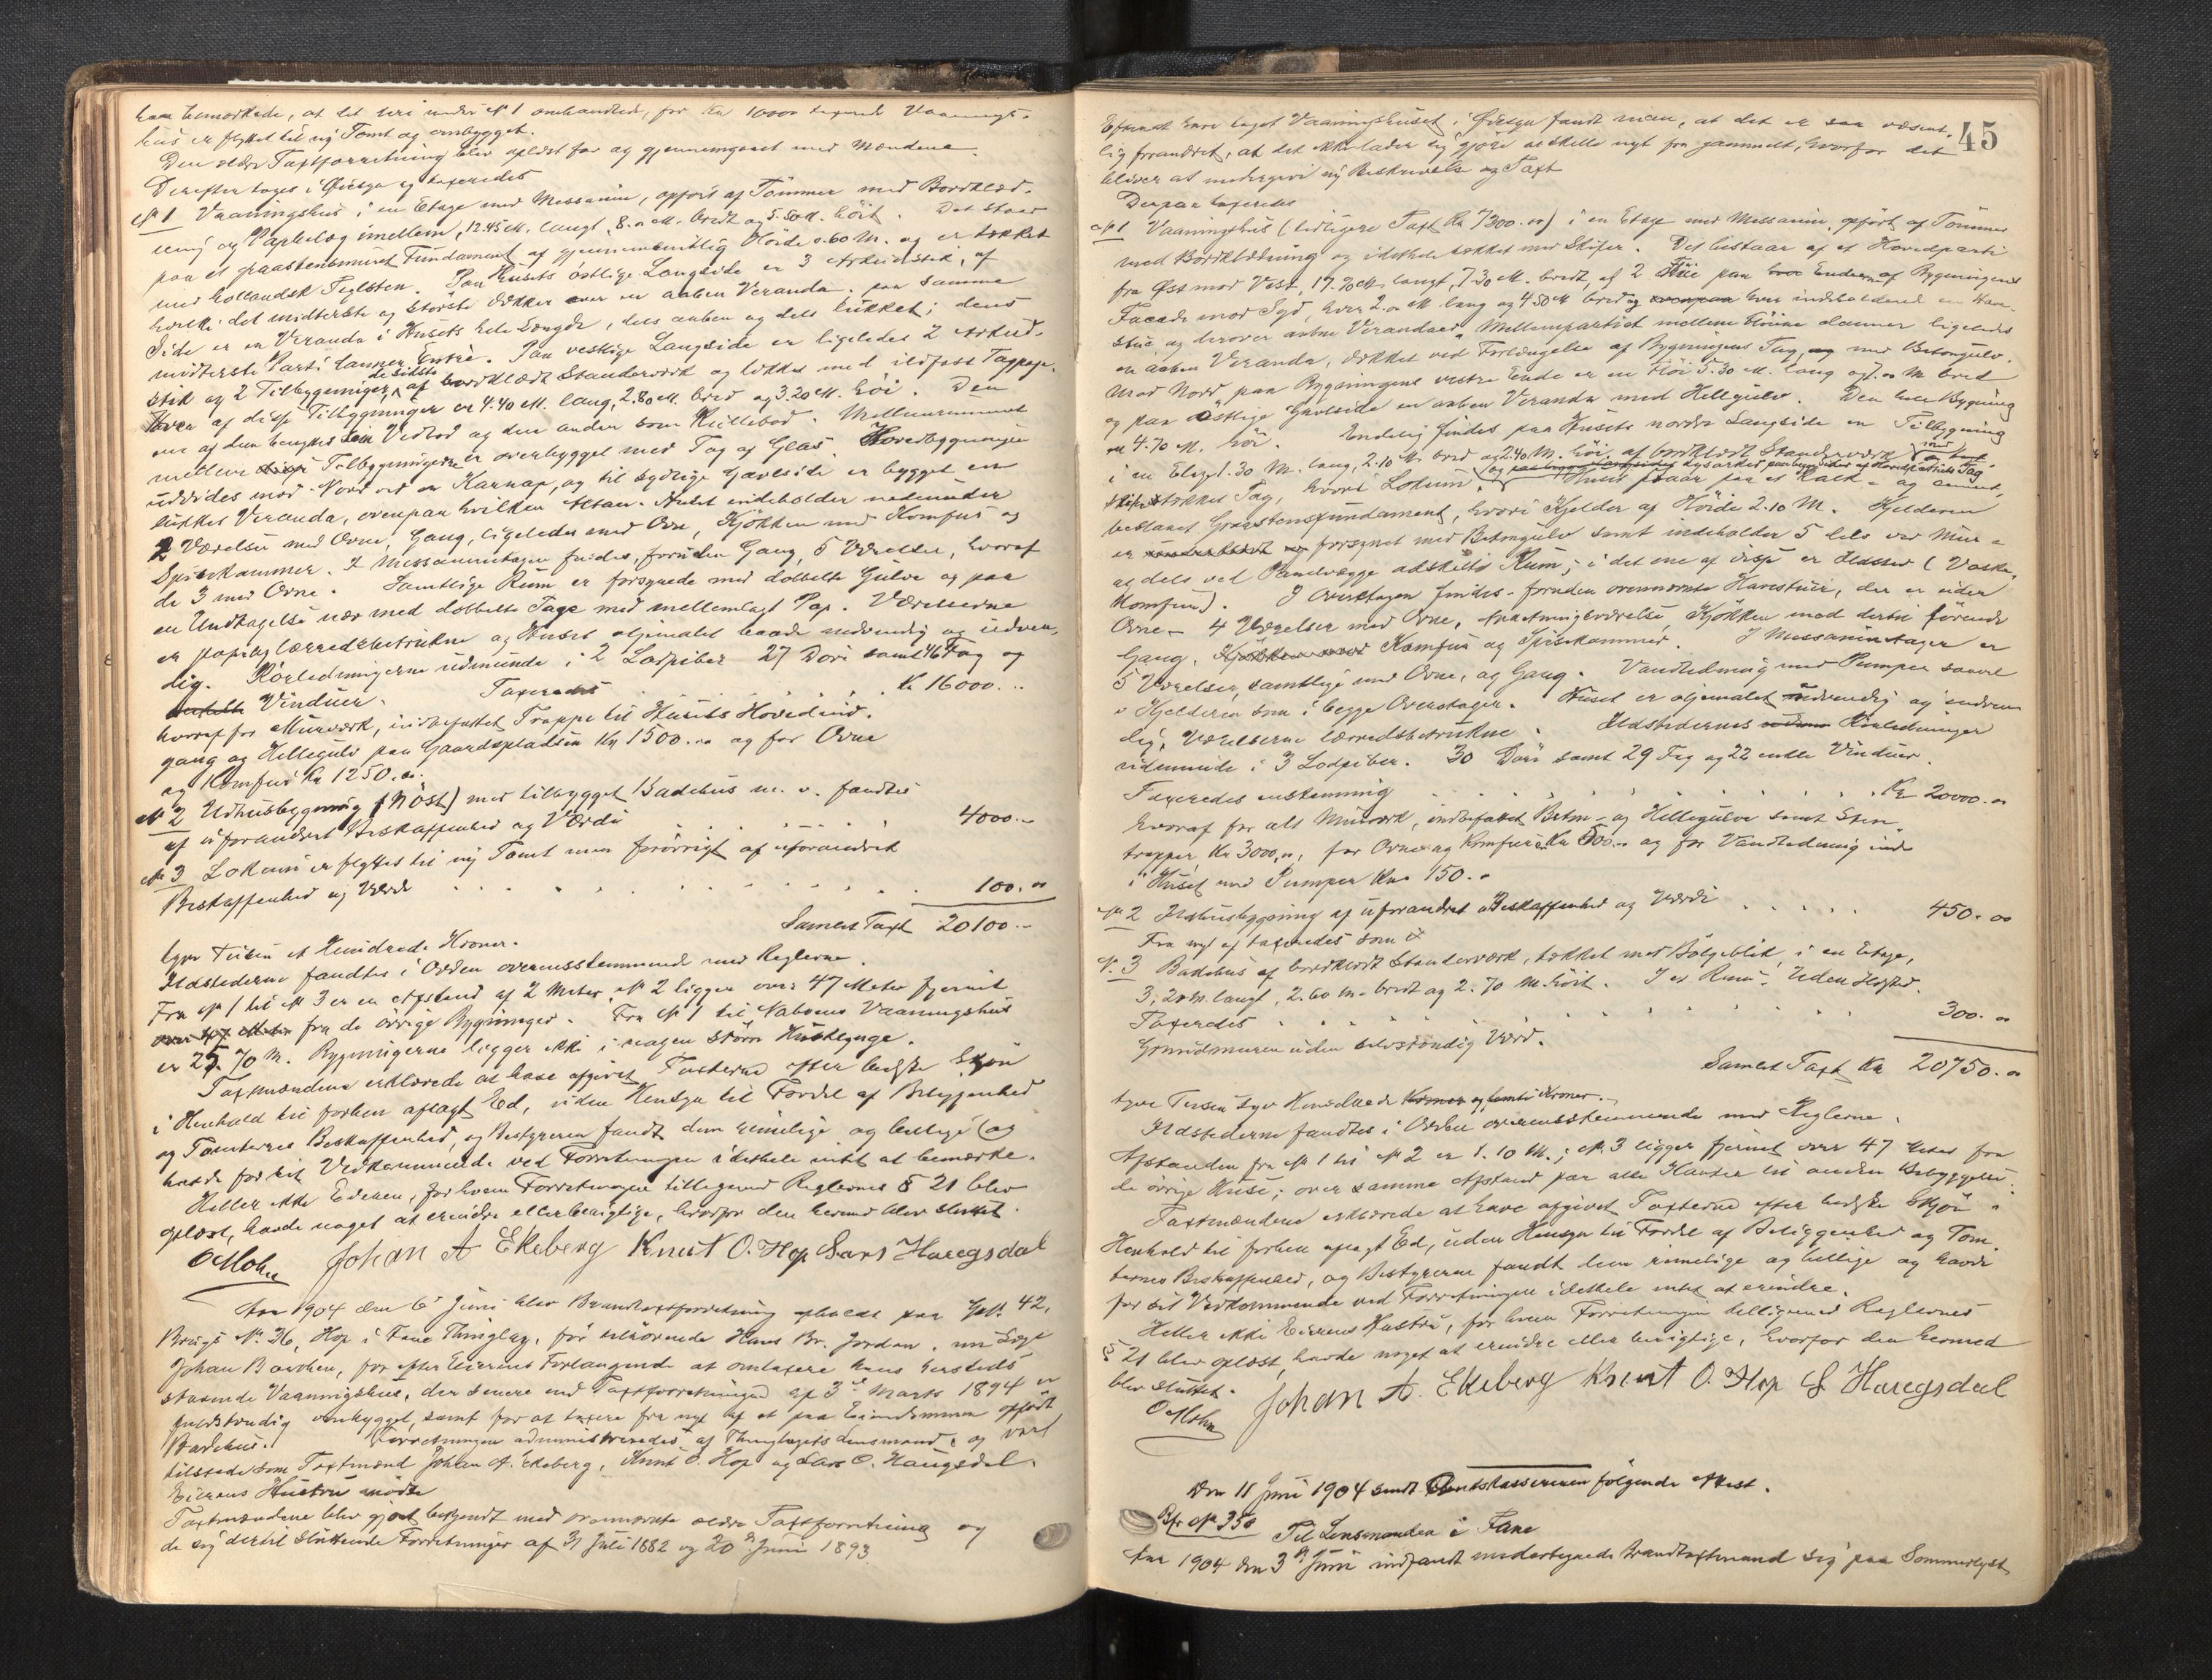 han bemærkede, at det heri under No 1 omhandlede, for Kr 10000 taxerede Vaanings-
hus er flyttet til ny Tomt og ombygget.
Den ældre Taxtforretning blev oplæst for og gjennemgaaet med Mændene.
Derefter toges i Øiesyn og taxeredes
No 1 Vaaningshus i en Etage med Messanin, opført af Tømmer med Bordklæd-
ning og Papbelæg imellem, 12.45 M. langt, 8.00 M. bredt og 5.50 M. høit. Det staar
paa et graastensmuret Fundament af gjennemsnitlig Høide 0.60 M. og er tækket
med hollandsk Teglsten. Paa Husets østlige Langside er 3 Arkudstik, af
hvilke det midterste og største dækker over en aaben Veranda. paa samme
Side er en Veranda i Husets hele Længde, dels aaben og dels lukket; dens
midterste Parti danner Entrè. Paa vestlige Langside er ligeledes 2 Arkud-
stik og 2 Tilbygninger, de sidste af bordklædt Standerværk og tækket med ildfast Tagpap.
Hver af disse Tilbygninger er 4.40 M. lang, 2.80 M. bred og 3.20 M. høi. Den
ene af dem benyttes som Vedbod og den anden som Rullebod. Mellemrummet
mellem Tilbygningerne er overbygget med Tag af Glas. Hovedbygningen
udvides mod Nord ved en Karnap, og til sydlige Gavlside er bygget en
lukket Veranda, ovenpaa hvilken Altan. Huset indeholder nedenunder
2 Værelser med Ovne, Gang, ligeledes med Ovn, Kjøkken med Komfur og
Spisekammer. I Messaninetagen findes, foruden Gang, 5 Værelser, hvoraf
de 3 med Ovne. Samtlige Rum er forsynede med dobbelte Gulve og paa
en Undtagelse nær med dobbelte Tage med mellemlagt Pap. Værelserne
er pap og lærredsbetrukne og Huset oljemalet baade indvendig og udven-
dig. Rørledningerne udmunde i 2 Lodpiber 27 Døre samt 46 Fag og
Vinduer. Taxeredes . . . Kr 16000. ..
hvoraf for Murværk, indbefattet Trappe til Husets Hovedind-
gang og Hellegulv paa Gaardspladsen Kr 1500.00 og for Ovne
og Komfur Kr 1250.00.
No 2 Udhusbygning (Nøst) med tilbygget Badehus m. v. fandtes
af uforandret Beskaffenhed og Værdi . . . . . . 4000.--
No 3 Lokum er flyttet til ny Tomt men forøvrigt af uforandret
Beskaffenhed og Værdi . . . . . . . . . . 100.00
Samlet Taxt 20100.--
tyve Tusen et Hundrede Kroner.
Ildstederne fandtes i Orden overensstemmende med Reglerne.
Fra No 1 til No 3 er en Afstand af 2 Meter, No 2 ligger over 47 Meter fjernet
fra de øvrige Bygninger. Fra No 1 til Naboens Vaaningshus
er 25.70 M. Bygningerne ligger ikke i nogen større Husklynge.
Taxtmændene erklærede at have afgivet Taxterne efter bedste Skjøn
i Henhold til forhen aflagt Ed, uden Hensyn til Fordel af Beliggenhed
og Tomternes Beskaffenhed, og Bestyreren fandt dem rimelige og billige og
havde for sit Vedkommende ved Forretningen idethele intet at bemærke.
Heller ikke Eieren, for hvem Forretningen tilligemed Reglernes § 21 blev
oplæst, havde noget at erindre eller berigtige, hvorfor den hermed blev sluttet.
O Mohn Johan A Ekeberg Knut O. Hop Lars Haugsdal
Aar 1904 den 6te Juni blev Brandtaxtforretning afholdt paa Gno. 42,
Brugs No 26, Hop i Fane Thinglag, før tilhørende Hans Br. Jordan, nu Læge
Johan Baarchen, for efter Eierens Forlangende at omtaxere hans hersteds
staaende Vaaningshus, der senere end Taxtforretningen af 3de Marts 1894 er
fuldstændig ombygget, samt for at taxere fra nyt af et paa Eiendommen opført
Badehus. Forretningen administreredes af Thinglagets Lensmand, og vare
tilstede som Taxtmænd Johan A. Ekeberg, Knut O. Hop og Lars O. Haugsdal.
Eierens Hustru mødte
Taxtmændene blev gjort bekjendt med ovennævnte ældre Taxtforretning og
de sig dertil sluttende Forretninger af 31 Juli 1882 og 20de Juni 1893
45
Efterat have taget Vaaningshuset i Øiesyn fandt man, at det er saa væsent-
lig forandret, at det ikke lader sig gjøre at skille nyt fra gammelt, hvorfor det
bliver at undergive ny Beskrivelse og Taxt
Derpaa taxeredes
No 1 Vaaningshus (tidligere Taxt Kr 7300.00) i en Etage med Messanin, opført af Tømmer
med Bordklædning og idethele tækket med Skifer. Det bestaar af et Hovedparti
fra Øst mod Vest, 17.70 M. langt, 7.30 M. bredt, af 2 Fløie paa Enderne af Bygningens
Facade mod Syd, hver 2.00 M. lang og 4.50 M bred og hver indeholdende en Have-
stue og derover aabne Verandaer. Mellempartiet mellem Fløiene danner ligeledes
en aaben Veranda, dækket ved Forlængelse af Bygningens Tag, med Betongulv.
Mod Nord paa Bygningens vestre Ende er en Fløi 5.30 M. lang og 7.00 M. bred
og paa østlige Gavlside en aaben Veranda med Hellegulv. Den hele Bygning
er 4.70 M. høi. Endelig findes paa Husets nordre Langside en Tilbygning
i en Etage 1.30 M. lang, 2.10 M. bred og 2.40 M. høi, af bordklædt Standerværk med
skifertækket Tag, hvori Lokum. Huset staar paa et Kalk- og cement-
beslaaet Graastensfundament, hvori Kjelder af Høide 2.10 M. Kjelderen
er forsynet med Betongulv samt indeholder 5 dels ved Mur-
og dels ved Panelvægge adskilte Rum; i det ene af disse er Ildsted (Vaske-
komfur). I Overetagen findes - foruden ovennævnte Havestuer, der er uden
Ovne - 4 Værelser med Ovne, Anretningsværelse, Kjøkken med dertil førende
Gang, Komfur og Spisekammer. I Messaninetagen er
5 Værelser, samtlige med Ovne, og Gang. Vandledning med Pumper saavel
i Kjelderen som i begge Overetager. Huset er oljemalet udvendig og indven-
dig, Værelserne lærredsbetrukne. Ildstedernes Rørledninger
udmunde i 3 Lodpiber. 30 Døre samt 29 Fag og 22 enkle Vinduer.
Taxeredes enstemmig . . . . . . . Kr 20000.00
hvoraf for alt Murværk, indbefattet Beton- og Hellegulve samt Sten-
trapper Kr 3000.00, for Ovne og Komfur Kr 500.00 og for Vandledning inde
i Huset med Pumper Kr. 150.00
No 2 Udhusbygning af uforandret Beskaffenhed og Værdi . . . . . 450.00
Fra nyt af taxeredes som
No 3 Badehus af bordklædt Standerværk, tækket med Bølgeblik, i en Etage,
3.20 M. langt, 2.60 M. bredt og 2.70 M. høit. I et Rum. Uden Ildsted.
Taxeredes . . . . . . . . . . 300.00
Grundmuren uden selvstændig Værd.
Samlet Taxt Kr 20750.00
tyve Tusen syv Hundrede og femti Kroner.
Ildstederne fandtes i Orden overensstemmende med Reglerne.
Afstanden fra No 1 til No 2 er 1.10 M.; No. 3 ligger fjernet over 47 Meter fra
de øvrige Huse; over samme Afstand paa alle Kanter til anden Bebyggelse.
Taxtmændene erklærede at have afgivet Taxterne efter bedste Skjøn i
Henhold til forhen aflagt Ed, uden Hensyn til Fordel af Beliggenhed og Tom-
ternes Beskaffenhed, og Bestyreren fandt dem rimelige og billige og havde
for sit Vedkommende ved Forretningen idethele intet at erindre.
Heller ikke Eierens Hustru, for hvem Forretningen tilligemed Reglernes
§ 21 blev oplæst, havde noget at erindre eller berigtige, hvorfor den hermed
blev sluttet.
O Mohn Johan A. Ekeberg Knut O. Hop L Haugsdal
Den 11 Juni 1904 sendt Amtskassereren følgende Attest.
Bfr No 350
Til Lensmanden i Fane
Aar 1904 den 3de Juni indfandt undertegnede Brandtaxtmænd sig paa Sommerlyst